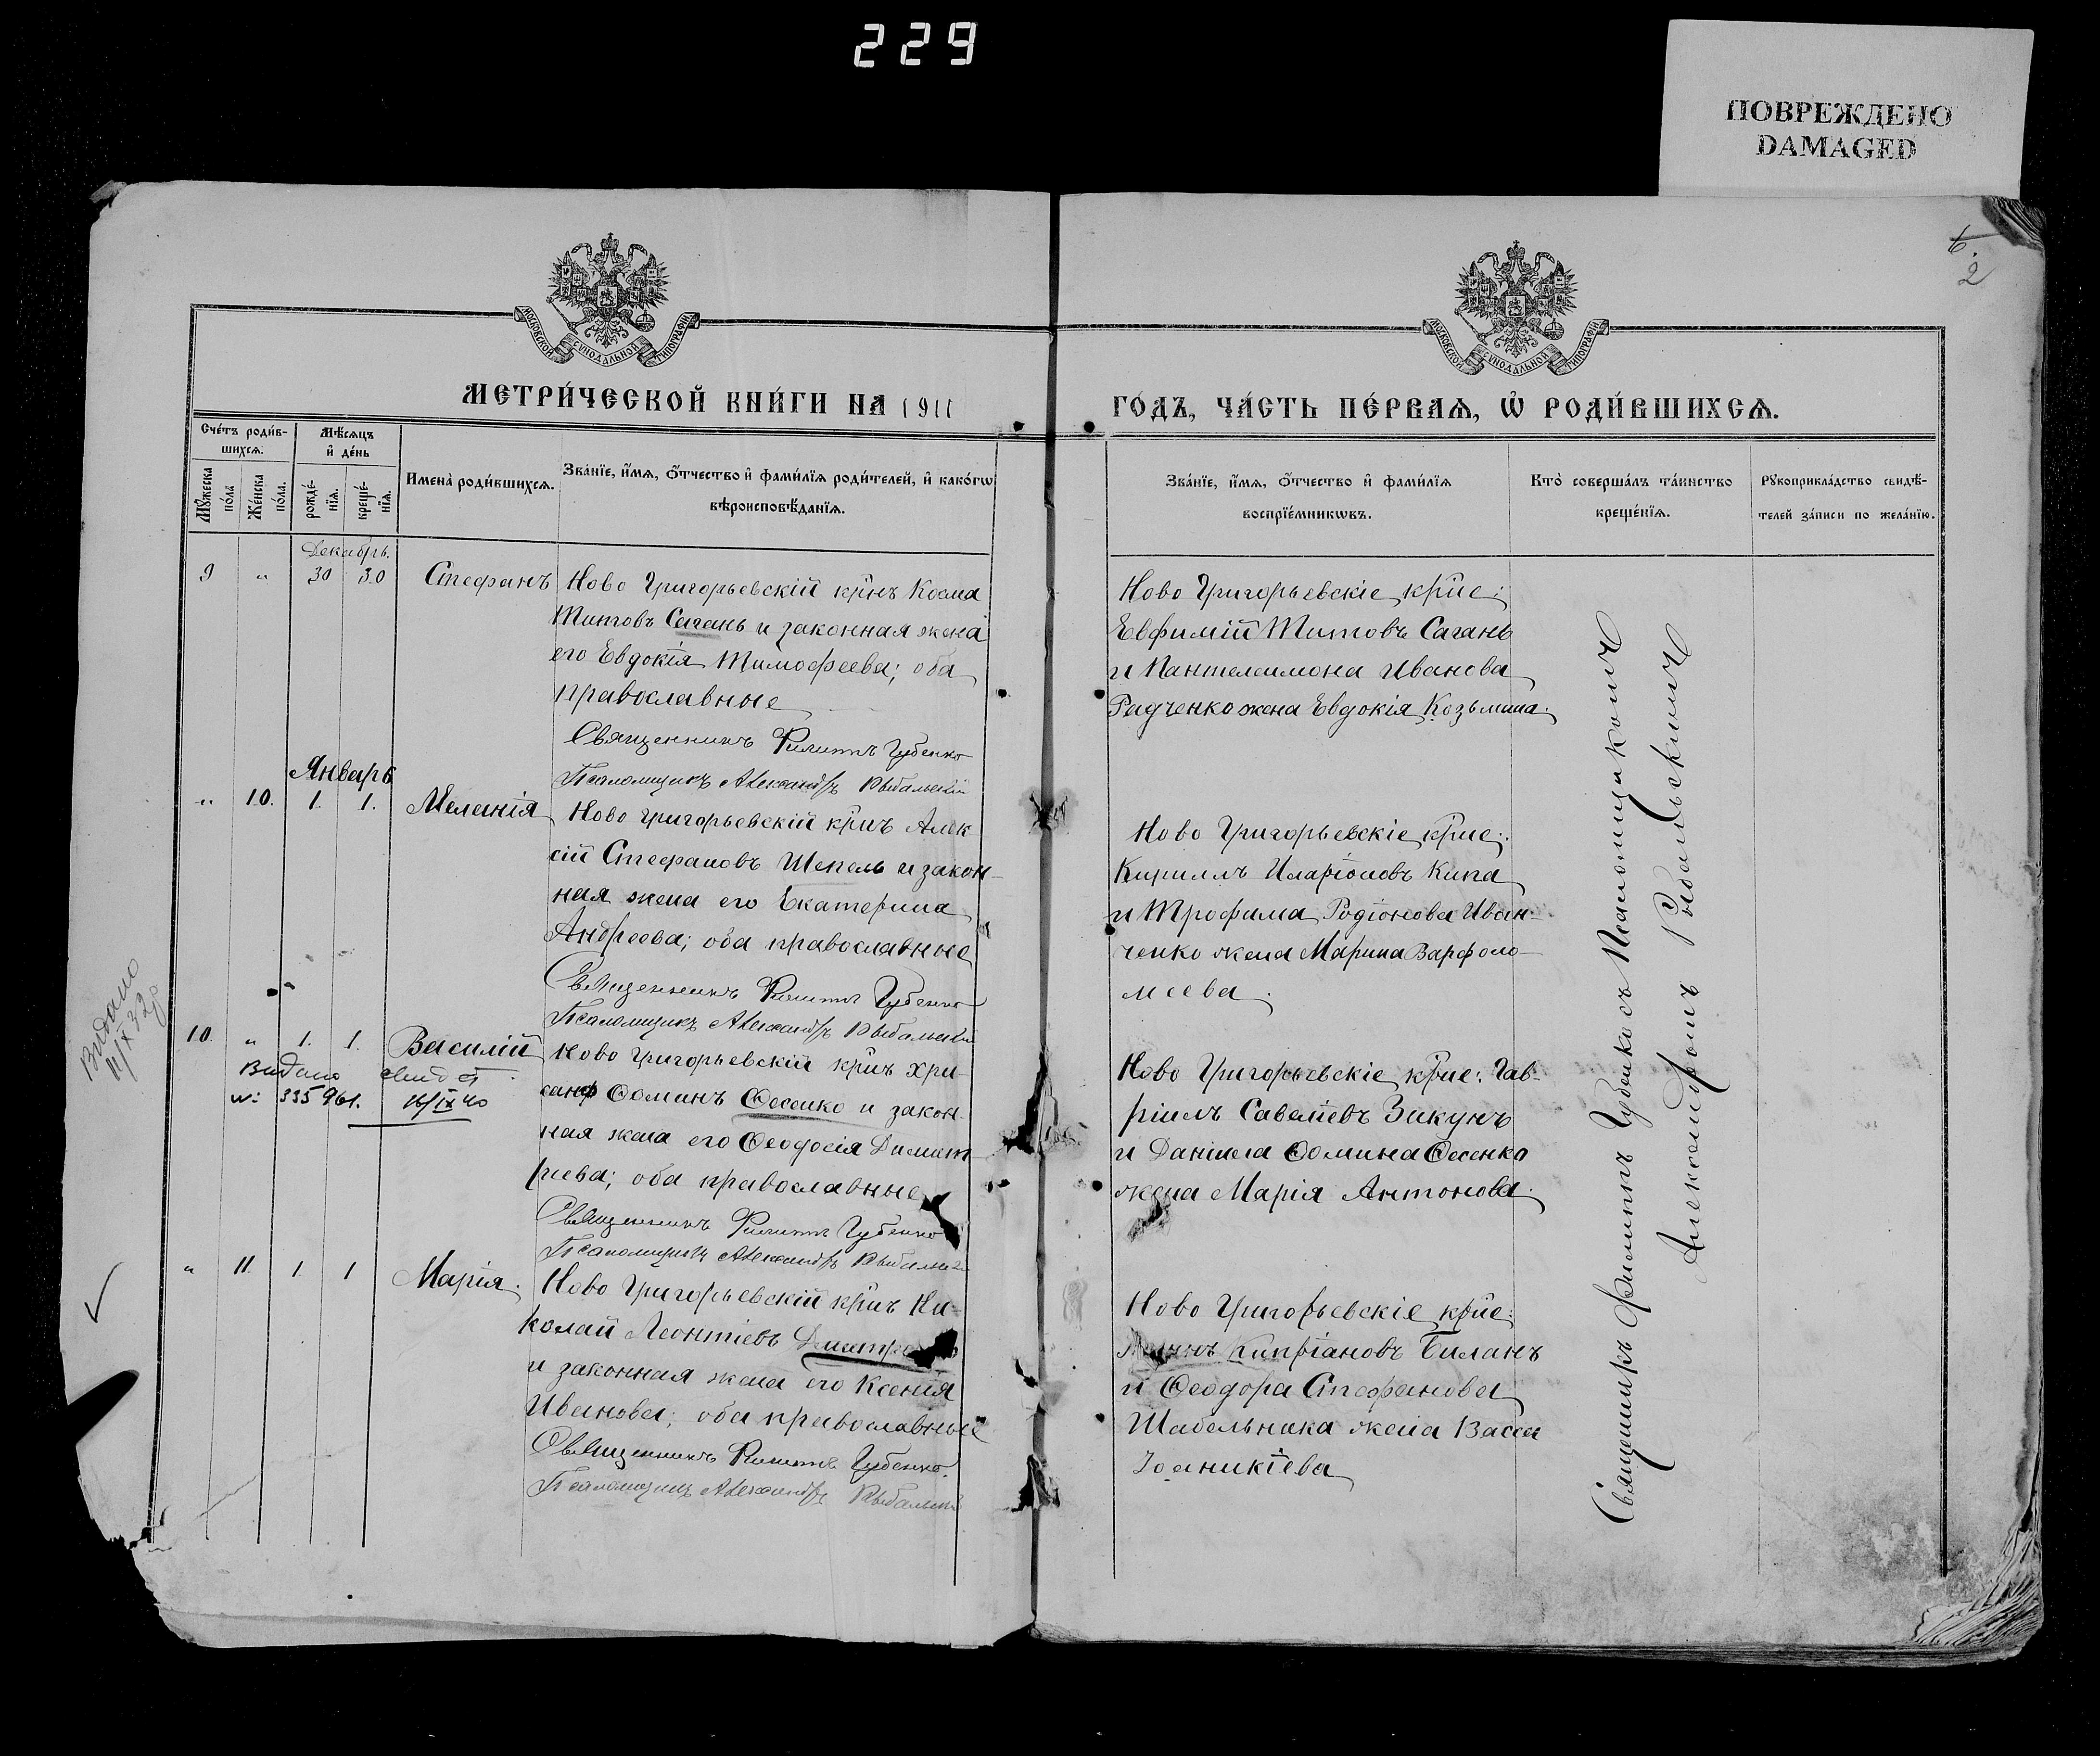 229
ПОВРЕЖДЕНО
DAMAGED
6.
2
МОСКОВСКОЙ СѴНОДАЛЬНОЙ ТИПОГРАФІИ
МОСКОВСКОЙ СѴНОДАЛЬНОЙ ТИПОГРАФІИ
МЕТРИ́ЧЕСКОЙ КНИ́ГИ НА 1911
ГО́ДЪ, ЧА́СТЬ ПЕ́РВАѦ, Ѡ҆ РОДИ́ВШИХСѦ.
Сче́тъ роди́в-
шихсѧ.
Мꙋ́жеска по́лъ
Же́нска по́ла.
Мѣ́сѧцъ
и҆ де́нь
рожде́-
нїѧ.
креще́-
нїѧ.
Имена̀ роди́вшихсѧ.
Зва́нїе, и҆́мѧ, ѻ҆́тчество и҆ фами́лїѧ роди́телей, и҆ како́гѡ
вѣроисповѣ́данїѧ.
Зва́нїе, и҆́мѧ, ѻ҆́тчество и҆ фами́лїѧ
воспрїе́мникѡвъ.
Кто̀ соверша́лъ та́инство
креще́нїѧ.
Рꙋкоприкла́дство свидѣ́-
телей за́писи по жела́нїю.
Декабрь.
9 " 30 30 Стефанъ Ново Григорьевскій крнъ Косма
Титовъ Сагань и законная жена
его Евдокія Тимофеева; оба
православные
Священникъ Филиппъ Губенко
Псаломщикъ Александръ Рыбальскій
Ново Григорьевскіе кріе:
Евфимій Титовъ Сагань
и Пантелеимона Иванова
Радченко жена Евдокія Козьмина.
Январь
" 10. 1. 1. Меланія Ново Григорьевскій крнъ Алек
сій Стефановъ Шепель и закон-
ная жена его Екатерина
Андреева; оба православные
Священникъ Филиппъ Губенко
Псаломщикъ Александръ Рыбальскій
Ново Григорьевскіе кріе:
Кириллъ Иларіоновъ Кипа
и Трофима Родіонова Иван-
ченко жена Марина Варфоло-
меева.
Видано
11/IX 32р
10. " 1. 1. Василій Ново Григорьевскій крнъ Хри
санф Ѳоминъ Ѳесенко и закон
ная жена его Ѳеодосія Димит
ріева; оба православные
Видано
№: 335961. 16/IX 40
Священникъ Филиппъ Губенко
Псаломщикъ Александръ Рыбальскій
Ново Григорьевскіе кріе: Гав-
ріилъ Савельевъ Зикунъ
и Даніила Ѳомина Ѳесенко
жена Марія Антонова.
" 11. 1. 1 Марія. Ново Григорьевскій крнъ Ни-
колай Леонтіевъ
и законная жена его Ксенія
Иванова; оба православные
Священникъ Филиппъ Губенко.
Псаломщикъ Александръ Рыбальскій
Ново Григорьевскіе кріе:
Кипріановъ Биланъ
и Ѳеодора Стефанова
Шабельника жена Васса
Іоаникіева
Священникъ Филиппъ Губенко съ Псаломщикомъ
Александромъ Рыбальскимъ